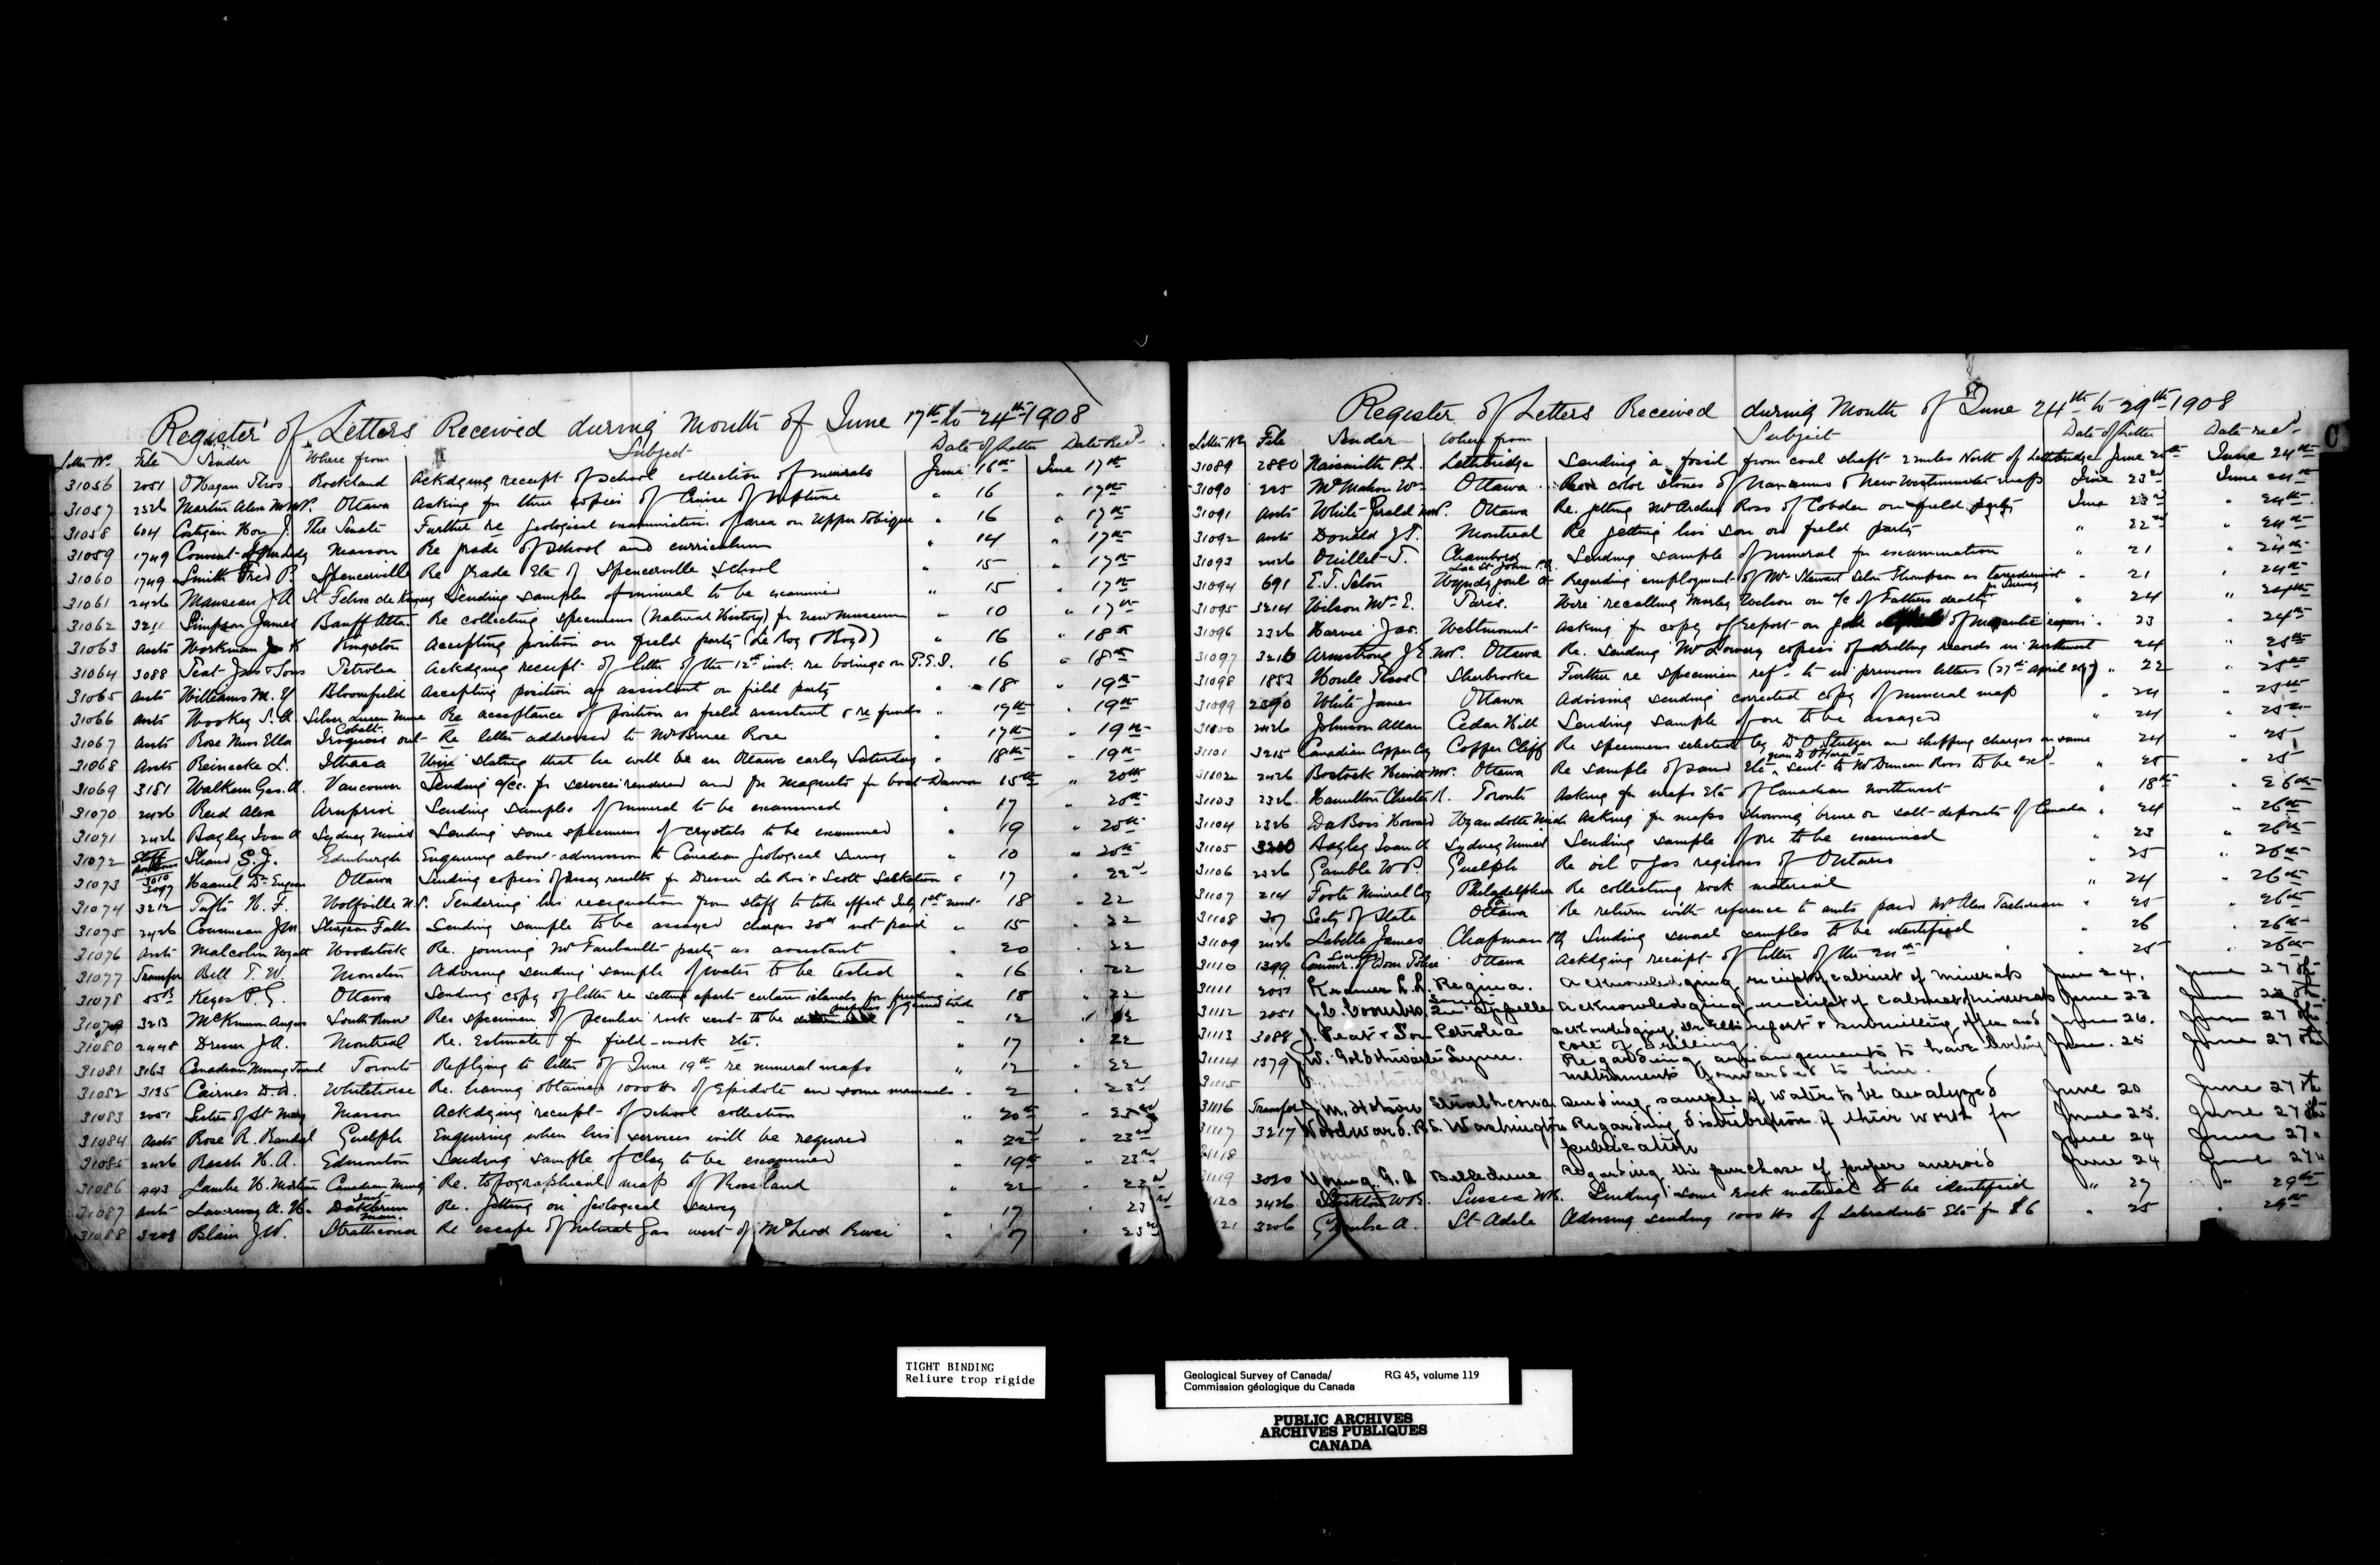 Register of Letters Received during Month of June 17th to 24th 1908
Letter No. File Sender Where from Subject Date of Letter Date Rec'd
31056 2051 O'Hagan Thos Rockland Ackdging receipt of school collection of minerals June 16th June 17th
31057 2326 Martin Alex M.P. Ottawa Asking for three copies of Cruise of Neptune " 16 " 17th
31058 604 Costigan Hon J. The Senate Further re geological examination of area on Upper Tobique " 16 " 17th
31059 1749 Convent of Masson Re grade of school and curriculum " 14 " 17th
31060 1749 Smith Fred P. Spencerville Re grade Etc of Spencerville School " 15 " 17th
31061 2426 Manseau J.A St Felix de Sending samples of mineral to be examined " 15 " 17th
31062 3211 Simpson James Banff Alta. Re collecting specimens (Natural History) for new museum " 10 " 17th
31063 Assts Workman Kingston Accepting position on field party (Le Roy & Boyd) " 16 " 18th
31064 3088 Peat Jas & Sons Petrolea Ackdging receipt of letter of the 12th inst. re borings on P.E.I. 16 " 18th
31065 Assts Williams M. Y Bloomfield Accepting position as assistant on field party " 18 " 19th
31066 Assts Wookey S. A. Silver Queen Mine Cobalt Re acceptance of position as field assistant & re funds " 17th " 19th
31067 Assts Rose Miss Ella Iroquois Ont Re letter addressed to Mr Bruce Rose " 17th " 19th
31068 Assts Reinecke L. Ithaca Wire stating that he will be in Ottawa early Saturday " 18th " 19th
31069 3181 Walkem Geo. A. Vancouver Sending a/cc. for services rendered and for magnets for boat Dawson 15th " 20th
31070 2426 Reid Alex Arnprior Sending samples of mineral to be examined " 17 " 20th
31071 2426 Bagley Ivan A Sydney Mines Sending some specimens of crystals to be examined " 19 " 20th
31072 Staff Shand S. J. Edinburgh Enquiring about admission to Canadian Geological Survey " 10 " 20th
31073 Haanel Dr Eugene Ottawa Sending copies of assay results for Dresser de Roi & Scott " 17 " 22nd
31074 3212 Tufts H. F. Wolfville N.S. Tendering his resignation from staff to take effect July 1st next 18 " 22
31075 2426 Cousineau J.M. Sturgeon Falls Sending sample to be assayed charges 30cts not paid " 15 " 22
31076 Assts Malcolm Wyatt Woodstock Re. joining Mr Faribault's party as assistant " 20 " 22
31077 Transfer Bell T. W. Moncton Advising sending sample of water to be tested " 16 " 22
31078 Keyes P. G. Ottawa Sending copy of letter re setting aparts certain islands for of game birds 18 " 22
31079 3213 McKinnon Angus South River Res specimen of peculiar rock sent to be " 12 " 22
31080 2448 Dresser J.A. Montreal Re. Estimate for field-work Etc. " 17 " 22
31081 3163 Canadian Mining Journal Toronto Replying to letter of June 19th re mineral maps " 12 " 22
31082 3135 Cairnes D.D. Whitehorse Re. having obtained 1000 lbs of Epidote and some mammals " 2 " 23rd
31083 2051 Sister of St Mary Masson Ackdging receipt of school collection " 20th " 23rd
31084 Assts Rose R. Randal Guelph Enquiring when his services will be required " 22nd " 23rd
31085 2426 Rassh H. A. Edmonton Sending sample of clay to be examined " 19th " 23rd
31086 443 Lambe H. Mortimer Canadian Mining Inst Re. topographical map of Rossland " 22 " 23rd
31087 Assts A. H. Man. Re. getting on Geological Survey " 17 " 23rd
31088 3208 Blain J.W. Strathcona Re escape of natural gas west of McLeod River " 17 " 23rd
Register of Letters Received during Month of June 24th to 29th 1908
Letter No File Sender Where from Subject Date of Letter Date rec'd
31089 2880 Naismith P.L. Lethbridge Sending a fossil from coal shaft 2 miles North of Lethbridge June 20th June 24th
31090 225 McMahon Wm Ottawa Re color stones of Nanaimo & New Westminster maps June 23rd June 24th
31091 Assts White Gerald M.P. Ottawa Re. getting Mr Arden Ross of Cobden on field party June 23rd " 24th
31092 Assts Donald J.T. Montreal Re getting his son on field party " 22nd " 24th
31093 2426 Ouillet T. Chambord Lac St John P.Q. Sending sample of mineral for examination " 21 " 24th
31094 691 E.T. Seton Wyndygoul Ct Regarding employment of Mr Stewart Seton Thompson as taxidermist for Survey " 21 " 24th
31095 3214 Wilson Mr E. Paris. Wire recalling Morley Wilson on a/c of Fathers death " 24 " 24th
31096 2326 Harvie Jas. Westmount Asking for copy of report on gold of Megantic region " 23 " 24th
31097 3216 Armstrong J E. M.P. Ottawa Re. sending Mr Lowery copies of drilling records in Northwest 24 " 25th
31098 1853 Houle Thos C Sherbrooke Further re specimen ref. to in previous letters (27th April 1907) " 22 " 25th
31099 2390 White James Ottawa Advising sending corrected copy of mineral map " 24 " 25th
31100 2426 Johnson Allan Cedar Hill Sending sample of ore to be assayed " 24 " 25th
31101 3215 Canadian Copper Coy Copper Cliff Re specimens selected by Dr O. Stutzer and shipping charges on same 24 " 25
31102 2426 Bostock Hewitt M.P. Ottawa Re sample of sand Etc sent to Mr Duncan Ross to be ex'd " 25 " 25
31103 2326 Hamilton Chester R. Toronto Asking for maps Etc of Canadian Northwest " 18th " 26th
31104 2326 DuBois Howard Wyandotte Mich Asking for maps showing brine or salt deposits of Canada " 24 " 26th
31105 Bagley Ivan A Sydney Mines Sending sample of ore to be examined " 23 " 26th
31106 2326 Gamble W P. Guelph Re oil & gas regions of Ontario " 25 " 26th
31107 214 Foote Mineral Coy Philadelphia Re collecting rock material " 24 " 26th
31108 307 Secty of State Ottawa Re return with reference to amts paid Mr Alex Tachereau " 25 " 26th
31109 2426 Labelle James Chapman PQ Sending several samples to be identified 26 " 26th
31110 1399 Commr. of Dom Police Ottawa Ackdging receipt of letter of the 24th " 25 " 26th
31111 2051 Kramer L.L. Regina. acknowledging receipt of cabinet of minerals June 24. June 27th
31112 2051 Qu'appelle acknowledging receipt of cabinet of minerals June 23 June 27th
31113 3088 J. Peat & Son Petrolia acknowledging Dr Ells report & submitting offer and cost of drilling June 26. June 27th
31114 1379 W. Goldschwartz Lynn. Regarding arrangements to have instruments forwarded to him. June. 25 June 27th
31115
31116 Transfer J.M. Strathcona sending sample of water to be analyzed June 20 June 27th
31117 3217 Woodward. R.S. Washington Regarding distribution of their worth for publication June 25. June 27th
31118 June 24 June 27"
31119 3020 Young. G. A Belledune Regarding the purchase of proper aneroid June 24 June 27"
31120 2426 Stockton W.R. Sussex N.B. Sending some rock material to be identified " 27 " 29th
31121 3206 A. St Adele Advising sending 1000 lbs of labradorite Etc for $6 " 25 " 29th
C
TIGHT BINDING
Reliure trop rigide
Geological Survey of Canada/ RG 45, volume 119
Commission géologique du Canada
PUBLIC ARCHIVES
ARCHIVES PUBLIQUES
CANADA